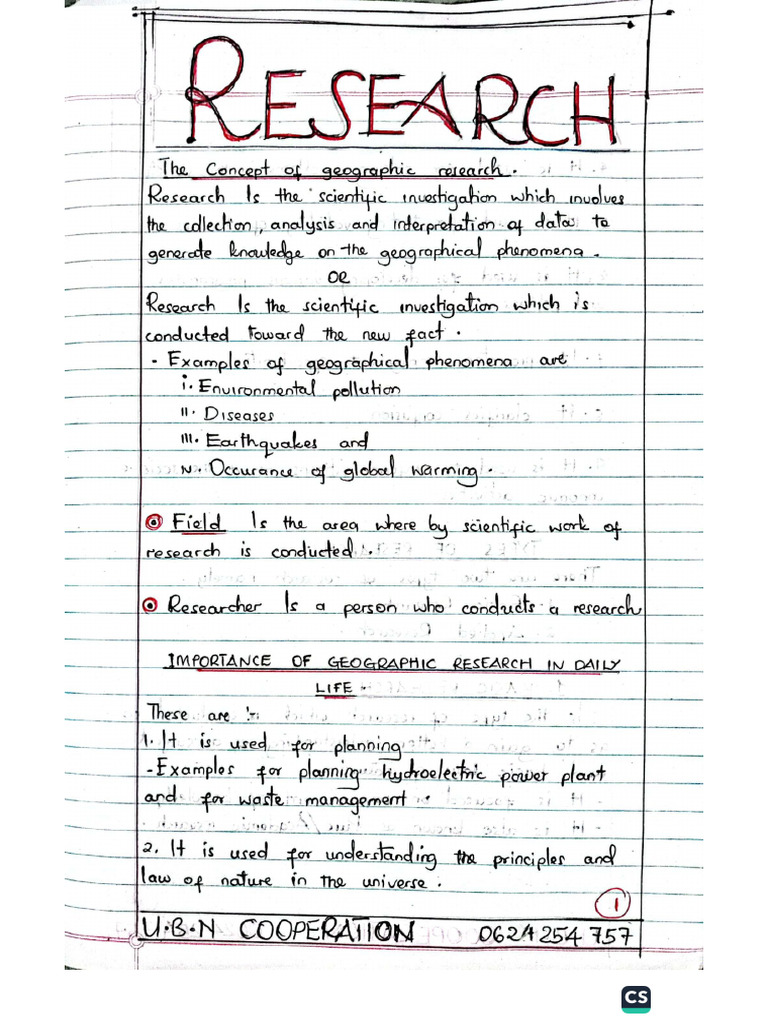 RESEARCH
The Concept of geographic research.
Research Is the scientific investigation which involves
the collection, analysis and interpretation of data to
generate knowledge on the geographical phenomena.
OR
Research Is the scientific investigation which is
conducted toward the new fact.
- Examples of geographical phenomena are
i. Environmental pollution
II. Diseases
III. Earthquakes and
IV. Occurance of global warming.
Field Is the area where by scientific work of
research is conducted.
Researcher Is a person who conducts a research
IMPORTANCE OF GEOGRAPHIC RESEARCH IN DAILY
LIFE.
These are :-
1. It is used for planning
- Examples for planning hydroelectric power plant
and for waste management.
2. It is used for understanding the principles and
law of nature in the universe.
1
U.B.N COOPERATION 0624254757
CS